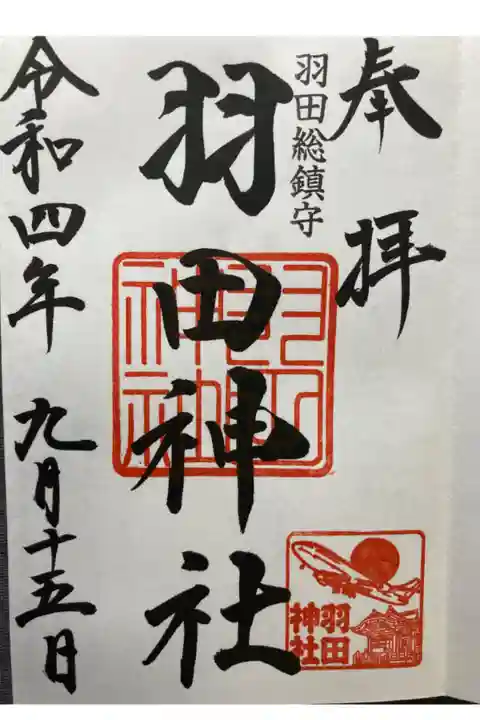 奉拝
羽田総鎮守
羽田神社
羽田神社
令和四年 九月十五日
羽田
神社